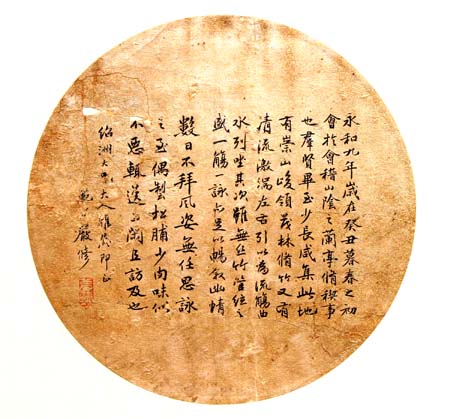 永和九年歲在癸丑暮春之初
會於會稽山陰之蘭亭脩禊事
也羣賢畢至少長咸集此地
有崇山峻領茂林脩竹又有
清流激湍左右引以為流觴曲
水列坐其次雖無丝竹管絃之
盛一觴一詠亦足以暢叙幽情
數日不拜風姿無任思詠
之至偶製松脯少味似
不惡輒送聞且訪及也
紹洲大大人雅即正
嚴修